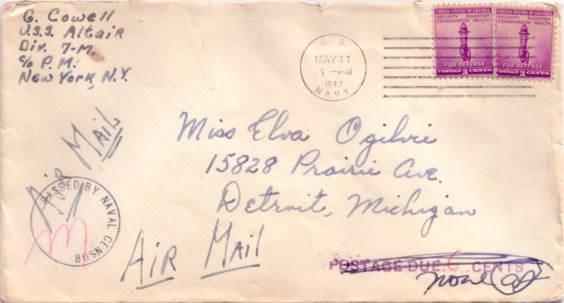 G. Cowell
U.S.S. Altair
Div. 7-M
c/o P.M.
New York, N.Y.
U. S.
MAY 11
1 -PM
1942
NAVY
UNITED STATES OF AMERICA
SECURITY EDUCATION
CONSERVATION HEALTH
FOR DEFENSE
POSTAGE 3 CENTS
UNITED STATES OF AMERICA
SECURITY EDUCATION
CONSERVATION HEALTH
FOR DEFENSE
POSTAGE 3 CENTS
Miss Elva Ogilvie
15828 Prairie Ave.
Detroit, Michigan
Air Mail
PASSED BY NAVAL CENSOR
Air Mail
POSTAGE DUE 6 CENTS
none